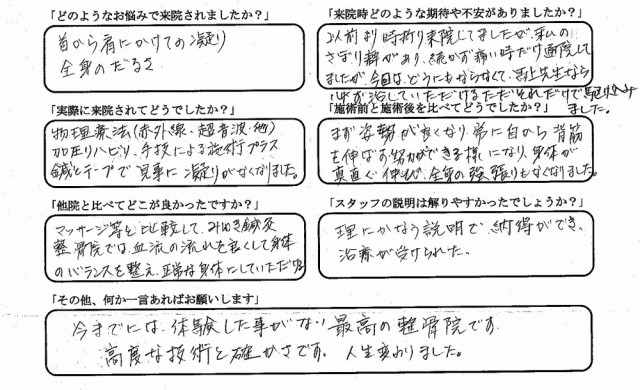 「どのようなお悩みで来院されましたか？」
首から肩にかけての凝り
全身のだるさ
「来院時どのような期待や不安がありましたか？」
以前より時折り来院してましたが、私の
さぼり癖があり、続かず痛い時だけ通院して
ましたが、今回は、どうにもならなくて、馬上先生なら
必ず治していただけるただそれだけで駆け込み
ました。
「実際に来院されてどうでしたか？」
物理療法(赤外線、超音波、他)
加圧リハビリ、手技による施術プラス
鍼とテープで見事に凝りがなくなりました。
「施術前と施術後を比べてどうでしたか？」
まず姿勢が良くなり、常に自から背筋
を伸ばす努力ができる様になり、身体が
真直ぐ伸び、全身の強張りもなくなりました。
「他院と比べてどこが良かったですか？」
マッサージ等と比較して、みゆき鍼灸
整骨院では、血流の流れを良くして身体
のバランスを整え、正常な身体にしていただける
「スタッフの説明は解りやすかったでしょうか？」
理にかなう説明で、納得ができ、
治療が受けられた。
「その他、何か一言あればお願いします」
今までには、体験した事がない最高の整骨院です
高度な技術と確かさです。人生変わりました。